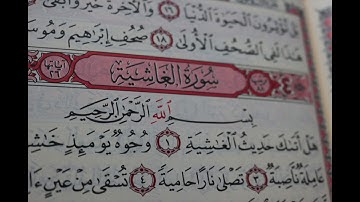 تُؤْثِرُونَ الْحَيَوٰةَ الدُّنْيَا ١٦ وَالْآخِرَةُ خَيْرٌ وَأَبْقَىٰ
هَٰذَا لَفِي الصُّحُفِ الْأُولَىٰ ١٨ صُحُفِ إِبْرَٰهِيمَ وَمُوسَىٰ
آيَاتُهَا ٢٦ سُورَةُ الْغَاشِيَةِ
بِسْمِ اللَّهِ الرَّحْمَٰنِ الرَّحِيمِ
هَلْ أَتَىٰكَ حَدِيثُ الْغَٰشِيَةِ ١ وُجُوهٌ يَوْمَئِذٍ خَٰشِعَةٌ
عَامِلَةٌ نَّاصِبَةٌ ٣ تَصْلَىٰ نَارًا حَامِيَةً ٤ تُسْقَىٰ مِنْ عَيْنٍ